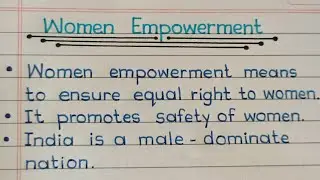 Women Empowerment
• Women empowerment means
to ensure equal right to women.
• It promotes safety of women.
• India is a male-dominate
nation.